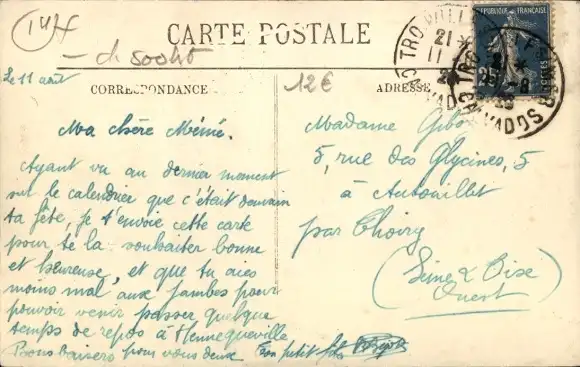 CARTE POSTALE
ch 500ht
12€
CORRESPONDANCE
ADRESSE
RÉPUBLIQUE FRANÇAISE
CALVADOS
Le 11 août
Ma chère Mémé.
Ayant vu au dernier moment
sur le calendrier que c'était demain
ta fête, je t'envoie cette carte
pour te la souhaiter bonne
et heureuse, et que tu aies
moins mal aux jambes pour
pouvoir venir passer quelque
temps de repos à Hennequeville
Bons baisers pour vous deux Ton petit fils
Madame
5, rue des Glycines, 5
à Autouillet
par Thoiry
(Seine & Oise
Ouest)